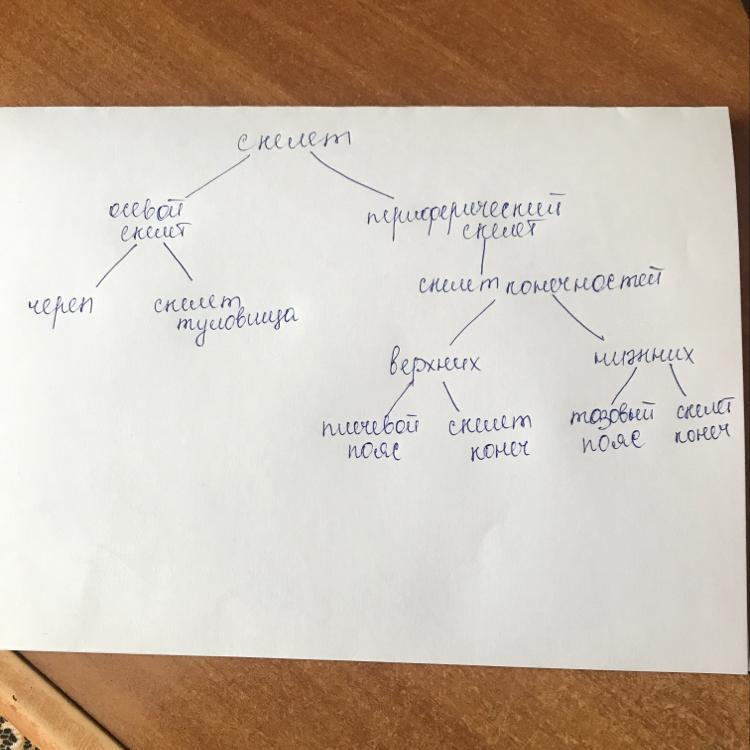 скелет
осевой
скелет
периферический
скелет
череп
скелет
туловища
скелет конечностей
верхних
нижних
плечевой
пояс
скелет
конеч
тазовый
пояс
скелет
конеч